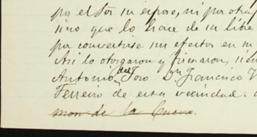 por el Sor su esposo, ni por otra
sino que lo hace de su libre
por convertirse su efecto en
Asi lo otorgaron y firmaron,
Antonio Toro Francisco
Ferreiro de esta vecindad
mon de la Cueva